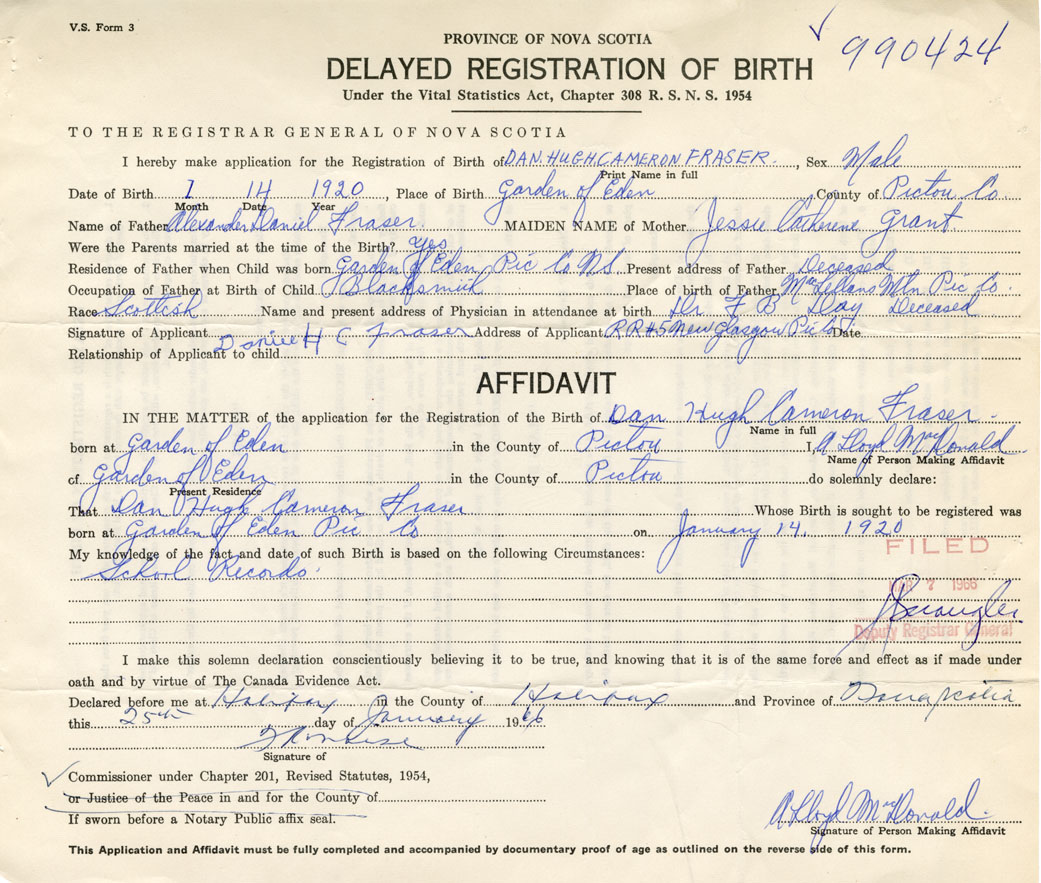 V.S. Form 3
990424
PROVINCE OF NOVA SCOTIA
DELAYED REGISTRATION OF BIRTH
Under the Vital Statistics Act, Chapter 308 R. S. N. S. 1954
TO THE REGISTRAR GENERAL OF NOVA SCOTIA
I hereby make application for the Registration of Birth of DAN. HUGH. CAMERON. FRASER., Sex Male
Print Name in full
Date of Birth 1 14 1920, Place of Birth Garden of Eden, County of Pictou Co.
Month Date Year
Name of Father Alexander Daniel Fraser. MAIDEN NAME of Mother Jessie Catherene Grant.
Were the Parents married at the time of the Birth? Yes
Residence of Father when Child was born Garden of Eden Pic Co NS Present address of Father Deceased
Occupation of Father at Birth of Child Blacksmith Place of birth of Father MacLellans Mtn Pic Co.
Race Scottish Name and present address of Physician in attendance at birth Dr F B Day Deceased
Signature of Applicant Daniel H C Fraser Address of Applicant RR #5 New Glasgow Pic Co Date
Relationship of Applicant to child
AFFIDAVIT
IN THE MATTER of the application for the Registration of the Birth of Dan Hugh Cameron Fraser.
Name in full
born at Garden of Eden in the County of Pictou I, A Lloyd MacDonald
Name of Person Making Affidavit
of Garden of Eden in the County of Pictou do solemnly declare:
Present Residence
That Dan Hugh Cameron Fraser Whose Birth is sought to be registered was
born at Garden of Eden Pic Co on January 14, 1920
My knowledge of the fact and date of such Birth is based on the following Circumstances:
FILED
School Records.
7 1966
Deputy Registrar General
I make this solemn declaration conscientiously believing it to be true, and knowing that it is of the same force and effect as if made under
oath and by virtue of The Canada Evidence Act.
Declared before me at Halifax in the County of Halifax and Province of Nova Scotia
this 25th day of January 1966
Signature of
Commissioner under Chapter 201, Revised Statutes, 1954,
or Justice of the Peace in and for the County of
If sworn before a Notary Public affix seal.
A Lloyd MacDonald.
Signature of Person Making Affidavit
This Application and Affidavit must be fully completed and accompanied by documentary proof of age as outlined on the reverse side of this form.